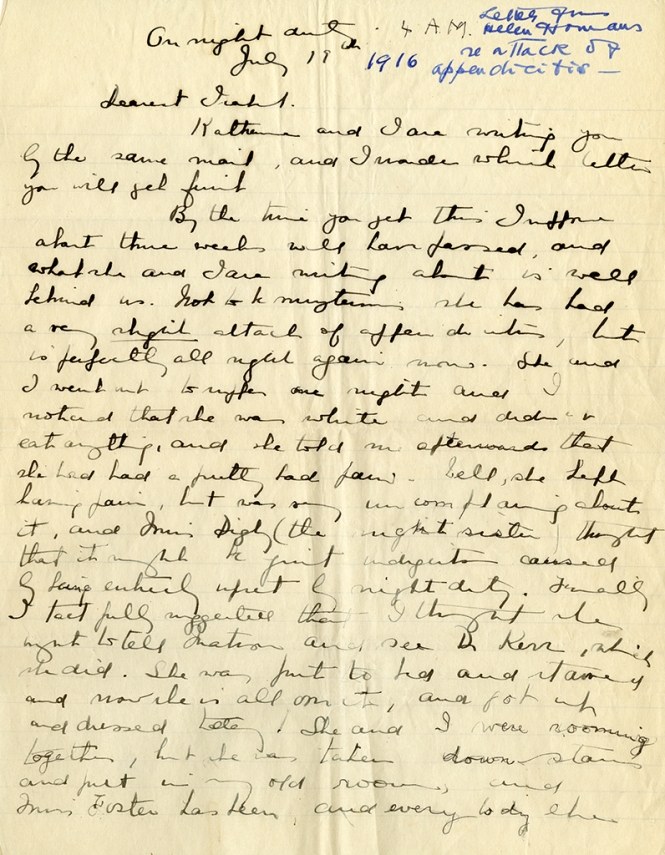 On night duty. 4 A.M.
July 19th 1916
Letter from
Helen Homans
re attack of
appendicitis —
Dearest Isabel.
Katherine and I are writing you
by the same mail, and I wonder which letter
you will get first
By the time you get this I suppose
about three weeks will have passed, and
what she and I are writing about is well
behind us. Not to be mysterious she has had
a very slight attack of appendicitis, but
is perfectly all right again now. She and
I went out to supper one night and I
noticed that she was white and didn't
eat anything, and she told me afterwards that
she had had a pretty bad pain. Well, she kept
having pain, but was very uncomplaining about
it, and Miss Digby (the night sister) thought
that it might be just indigestion caused
by being entirely upset by night duty. Finally
I tactfully suggested that I thought she
ought to tell Matron and see Dr Kerr, which
she did. She was put to bed and starved
and now she is all over it, and got up
and dressed today! She and I were rooming
together, but she was taken down-stairs
and put in my old room, and
Miss Foster has been, and everybody else